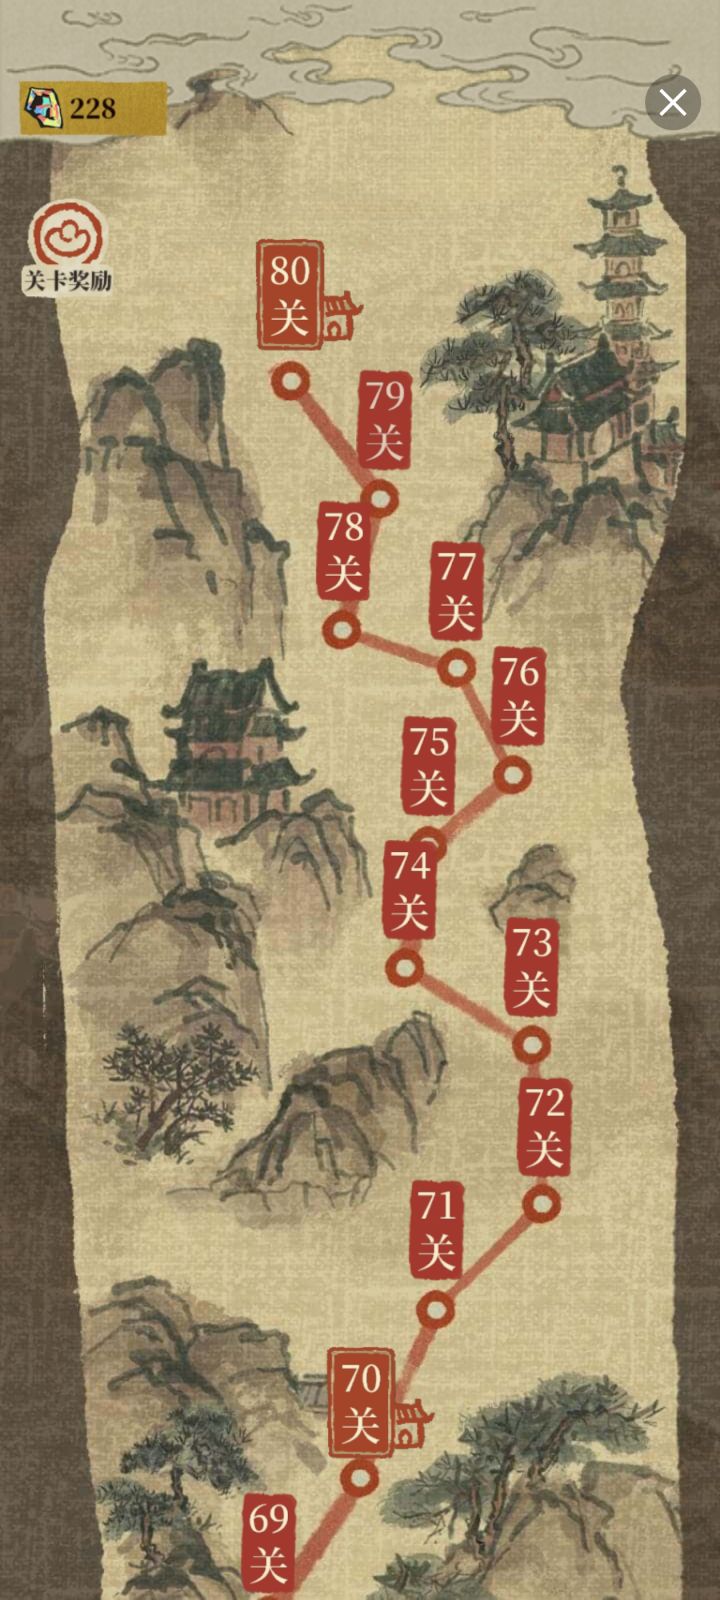 228
关卡奖励
80
关
79
关
78
关
77
关
76
关
75
关
74
关
73
关
72
关
71
关
70
关
69
关